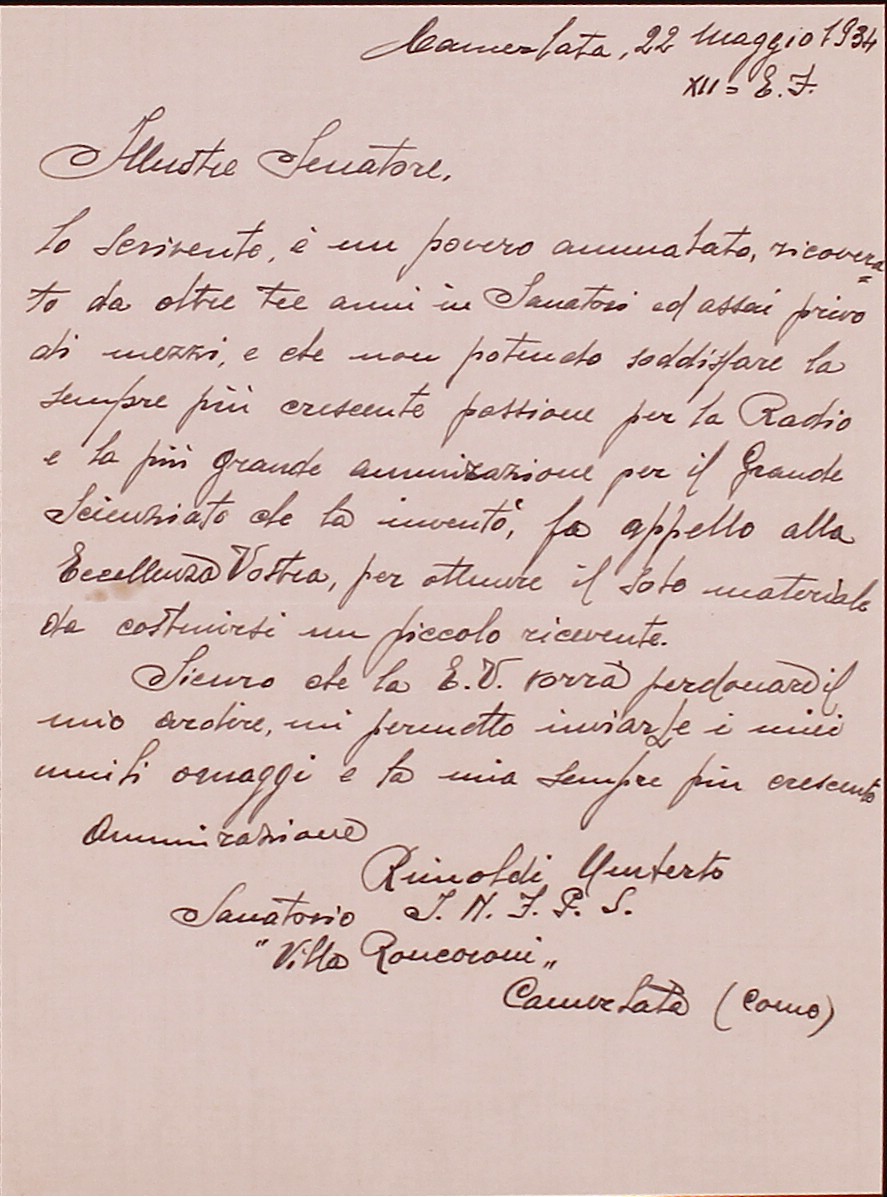 Camerlata, 22 Maggio 1934
XII= E. F.
Illustre Senatore,
Lo scrivente, è un povero ammalato, ricovera=
to da oltre tre anni in Sanatori ed assai privo
di mezzi, e che non potendo soddisfare la
sempre più crescente passione per la Radio
e la più grande ammirazione per il Grande
Scienziato che la inventò, fa appello alla
Eccellenza Vostra, per ottenere il solo materiale
da costruirsi un piccolo ricevente.
Sicuro che la E.V. vorrà perdonare il
mio ardire, mi permetto inviarLe i miei
umili omaggi e la mia sempre più crescente
ammirazione
Rimoldi Umberto
Sanatorio I. N. F. P. S.
"Villa Roncoroni"
Camerlata (Como)